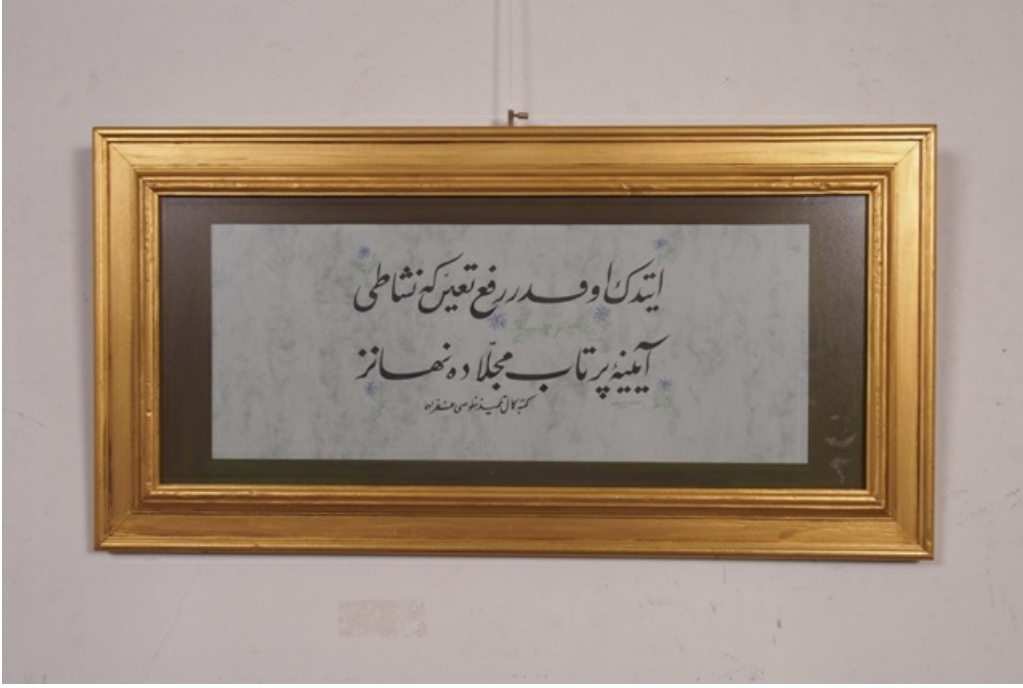 ایتدك او قدر رفع تعیّن كه نشاطی
آیینهٔ پر تاب مجلّاده نهانز
كتبه كمال تلمیذ خلوصی غفرلهما